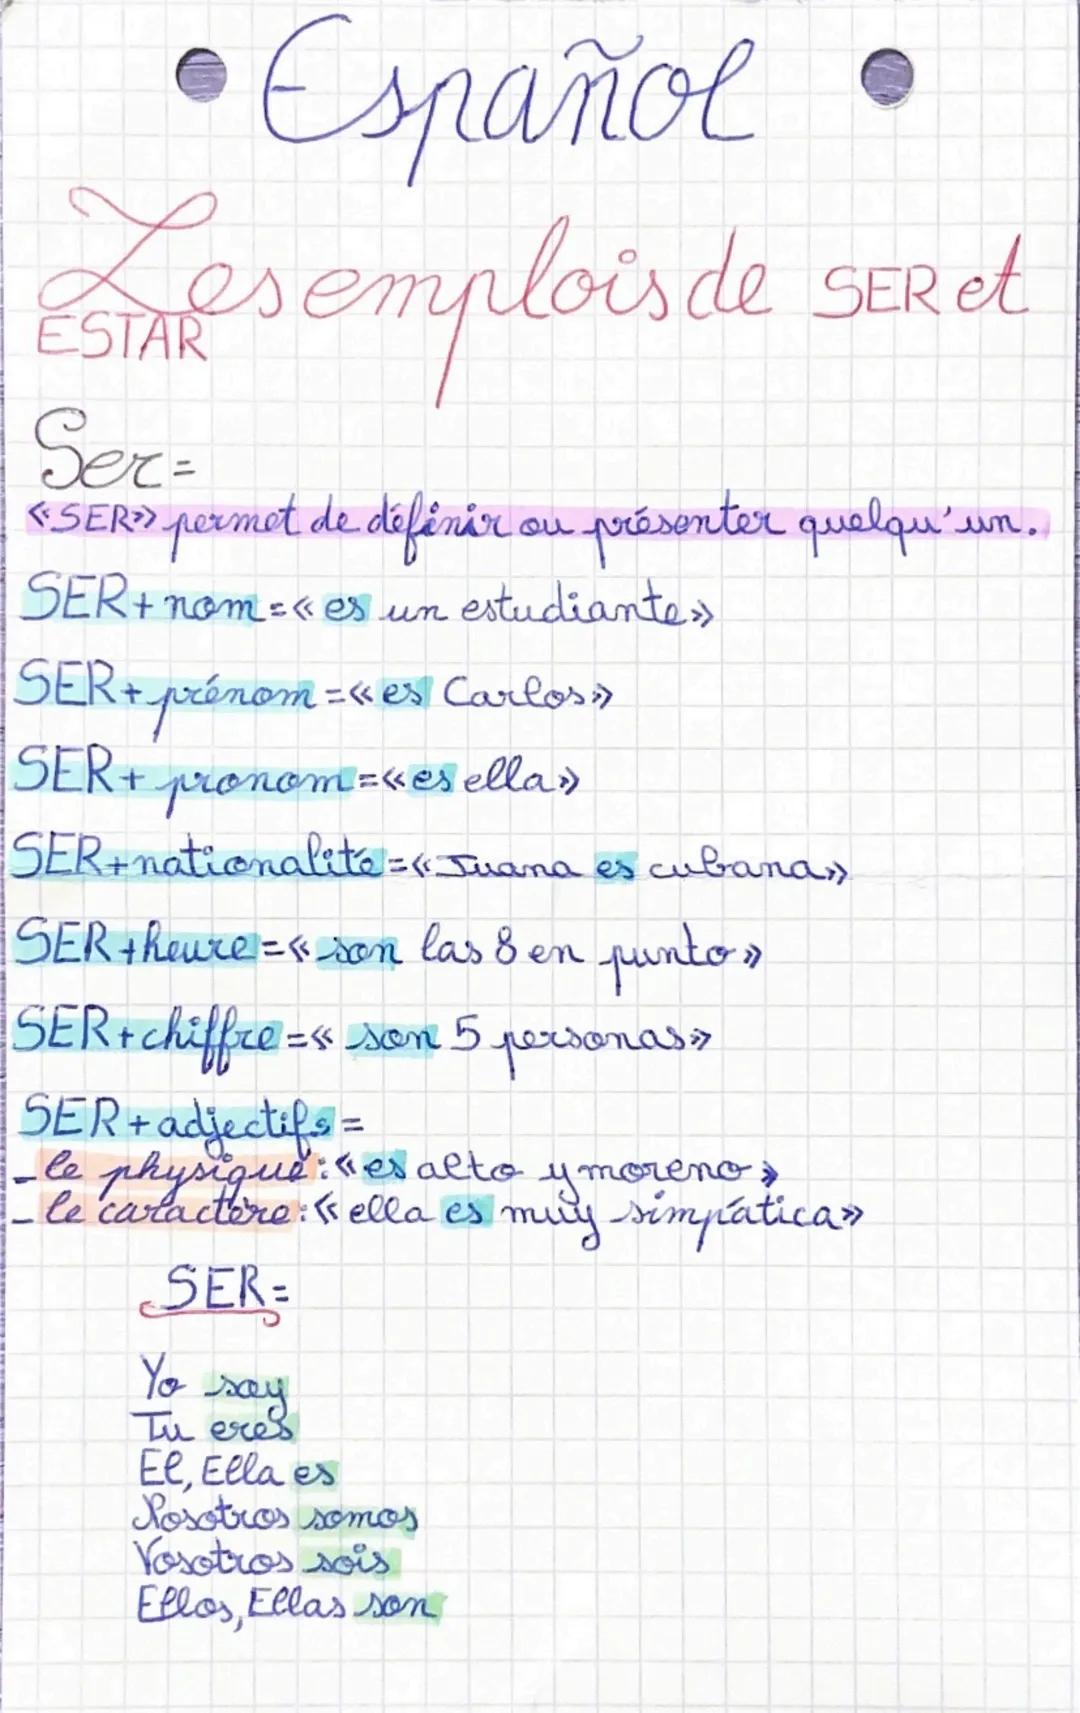 Español
Les emplois de SER et
ESTAR
Ser=
«SER» permet de définir ou présenter quelqu'un.
SER+nom=«es un estudiante»
SER+prénom=«es Carlos»
SER+pronom=«es ella»
SER+nationalité=«Juana es cubana»
SER+heure=«son las 8 en punto»
SER+chiffre=«son 5 personas»
SER+adjectifs=
-le physique:«es alto y moreno»
-le caractère:«ella es muy simpática»
SER=
Yo soy
Tu eres
El, Ella es
Nosotros somos
Vosotros sois
Ellos, Ellas son